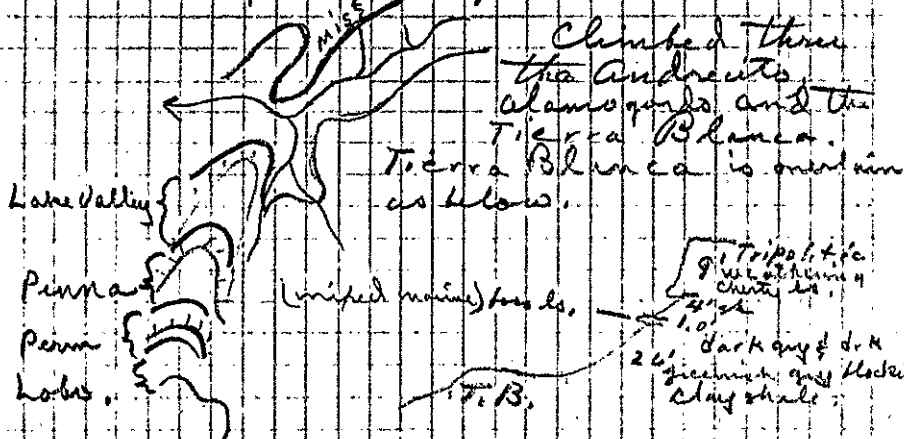 Miss
Climbed thru
the Andrecito,
Alamogordo and the
Tierra Blanca.
Tierra Blanca is overlain
as below.
Lake Valley
Penna
Perm
Lobo.
(mixed marine) fossils.
T.B.
9' Tripolitic
weathering
cherty ls.
4" sh
1.0'
26' dark gray & drk
greenish gray blocky
clay shale.